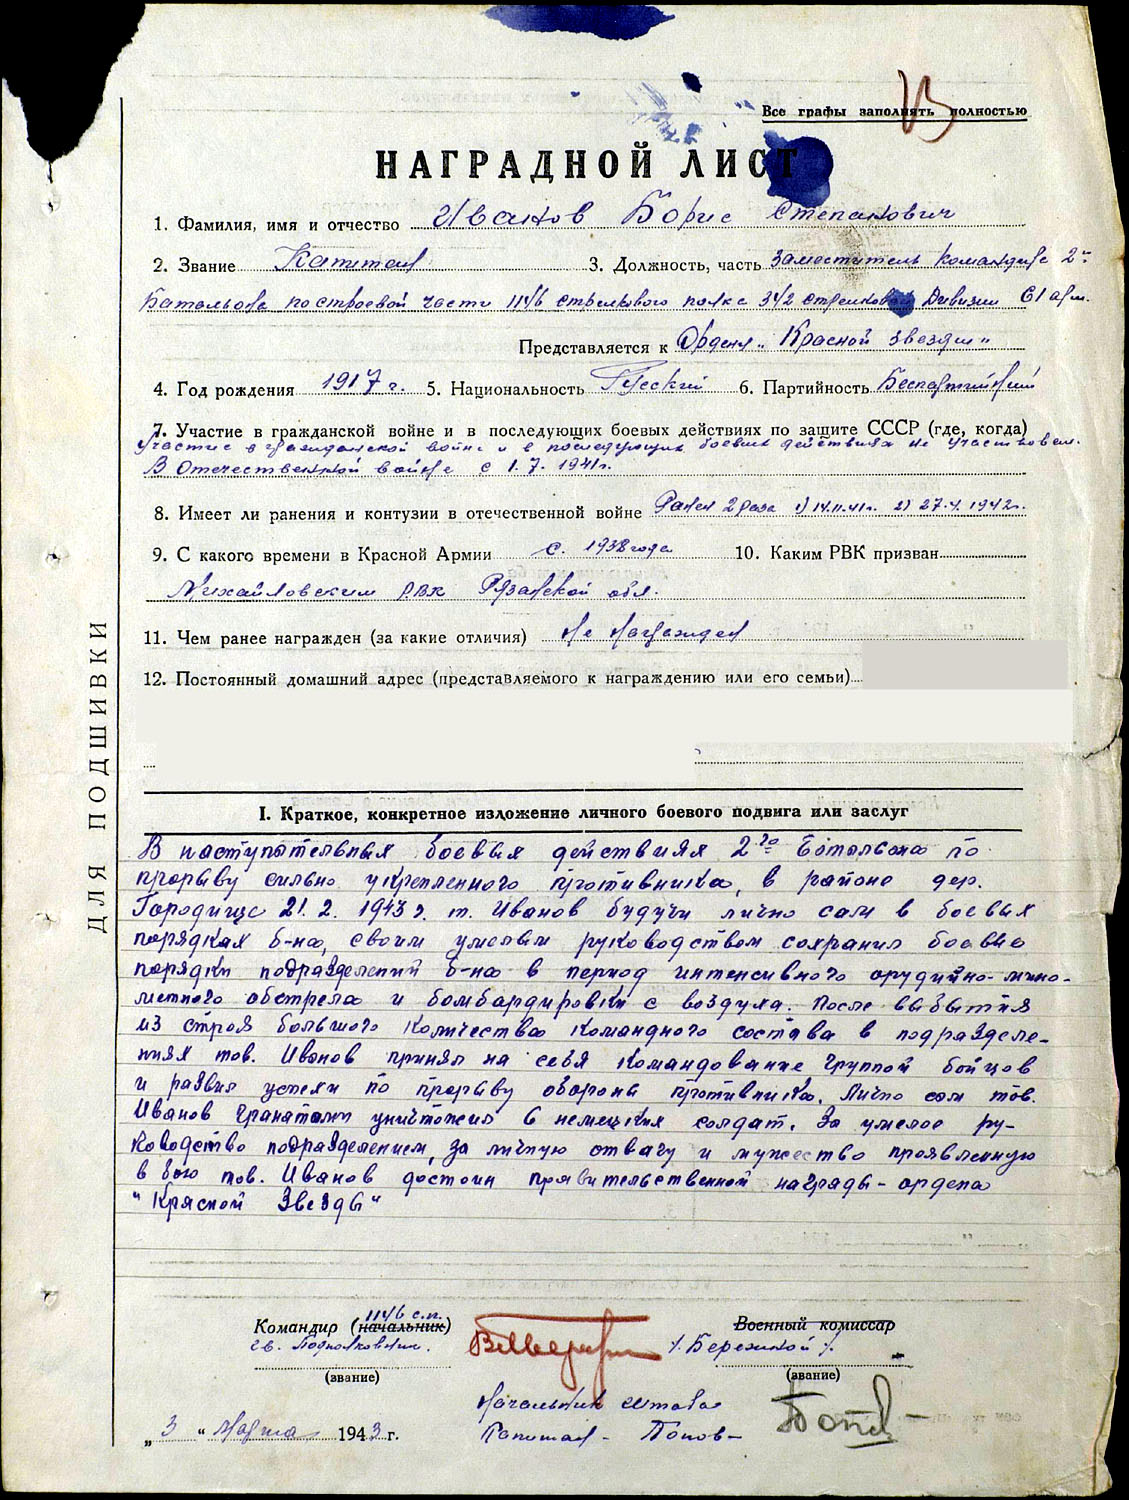 Все графы заполнять полностью
НАГРАДНОЙ ЛИСТ
1. Фамилия, имя и отчество Иванов Борис Степанович
2. Звание Капитан 3. Должность, часть Заместитель командира 2го
Батальона по строевой части 1146 стрелкового полка 342 стрелковой Дивизии 61 арм.
Представляется к Ордена "Красной Звезды"
4. Год рождения 1917 г. 5. Национальность Русский 6. Партийность Беспартийный
7. Участие в гражданской войне и в последующих боевых действиях по защите СССР (где, когда)
Участие в гражданской войне и в последующих боевых действиях не участвовал.
В Отечественной войне с 1.7.1941г.
8. Имеет ли ранения и контузии в отечественной войне Ранен 2 раза 1) 14.11.41г. 2) 27.4.1942г.
9. С какого времени в Красной Армии с 1938 года 10. Каким РВК призван
Михайловским РВК Рязанской обл.
11. Чем ранее награжден (за какие отличия) Не награжден
12. Постоянный домашний адрес (представляемого к награждению или его семьи)
ДЛЯ ПОДШИВКИ
I. Краткое, конкретное изложение личного боевого подвига или заслуг
В наступательных боевых действиях 2го Батальона по
прорыву сильно укрепленного противника, в районе дер.
Городище 21.2.1943 г. т. Иванов будучи лично сам в боевых
порядках б-на, своим умелым руководством сохранил боевые
порядки подразделений б-на в период интенсивного орудийно-мино-
метного обстрела и бомбардировки с воздуха. После выбытия
из строя большого количества командного состава в подразделе-
ниях тов. Иванов принял на себя командование группой бойцов
и развил успехи по прорыву обороны противника. Лично сам тов.
Иванов гранатами уничтожил 6 немецких солдат. За умелое ру-
ководство подразделением, за личную отвагу и мужество проявленную
в бою тов. Иванов достоин правительственной награды - ордена
"Красной Звезды"
1146 с.п.
Командир (начальник) Военный комиссар
гв. Подполковник. /Бережной/.
(звание) (звание)
Начальник штаба
Капитан - Попов -
„3" Марта 1943 г.